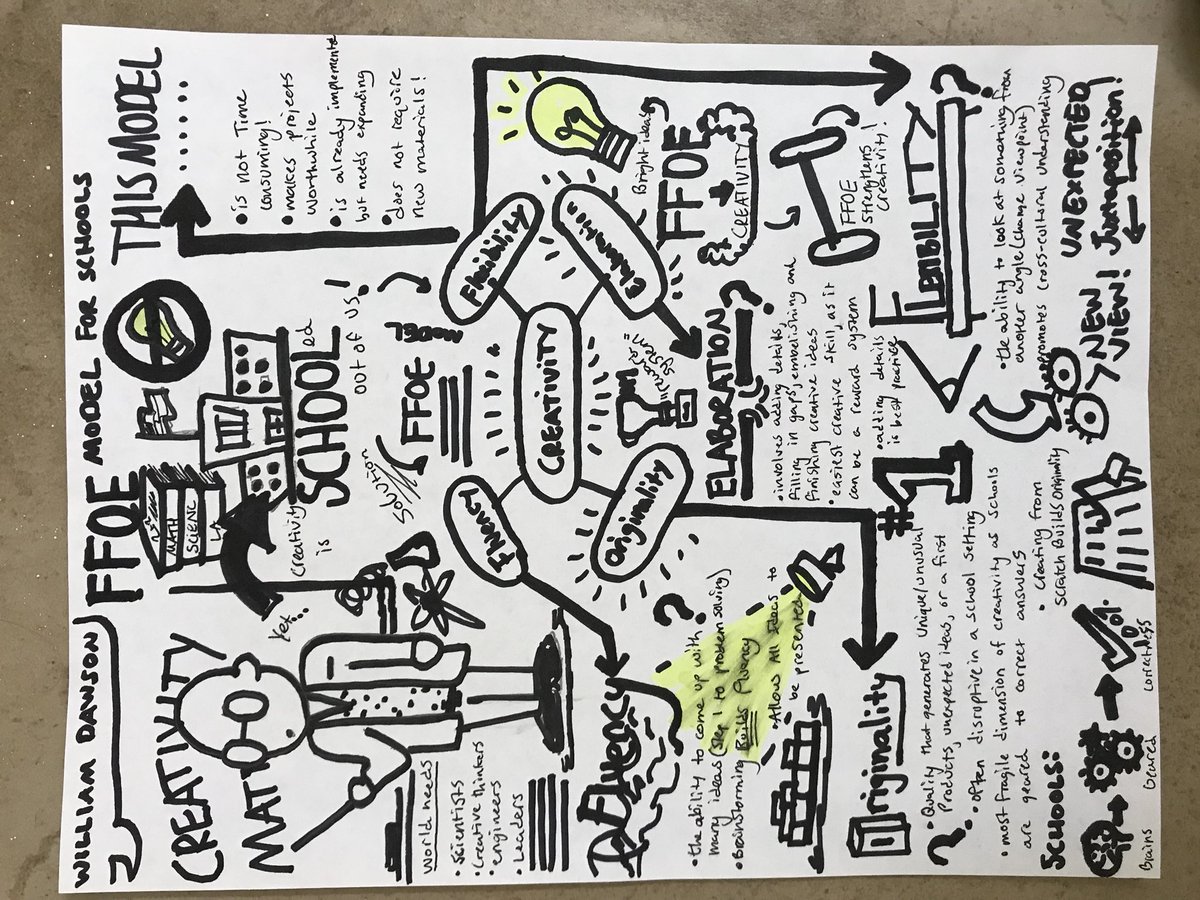 WILLIAM DAWSON
FFOE MODEL FOR SCHOOLS
CREATIVITY
MATTERS
MATH
SCIENCE
LA
Yet...
Creativity
is
SCHOOLed
out of us!
THIS MODEL
......
• is not Time
consuming!
• makes projects
worthwhile
• is already implemented
but needs expanding
• does not require
new materials!
World needs
• Scientists
• Creative thinkers
• engineers
• Leaders
Solution
FFOE MODEL
CREATIVITY
Fluency
Flexibility
Originality
Elaboration
Bright ideas
FFOE
CREATIVITY
FFOE
strengthens
Creativity!
Fluency?
• the ability to come up with
many ideas (step 1 to problem solving)
• Brainstorming Builds Fluency
• Allows All Ideas to
be presented
"Reward System"
ELABORATION?
• involves adding details,
filling in gaps, embelishing and
finishing creative ideas
• easiest creative skill, as it
can be a reward system
• adding details
is best practice
#1
Originality
?
• Quality that generates Unique/unusual
Products, unexpected ideas, or a first
• often disruptive in a school setting
• most fragile dimension of creativity as schools
are geared to correct answers
• Creating from
Scratch Builds Originality
SCHOOLS:
Brains
Geared
Correctness
FLEXIBILITY?
• the ability to look at something from
another angle (change viewpoint)
• promotes cross-cultural understanding
NEW
VIEW!
UNEXPECTED
Juxtaposition!